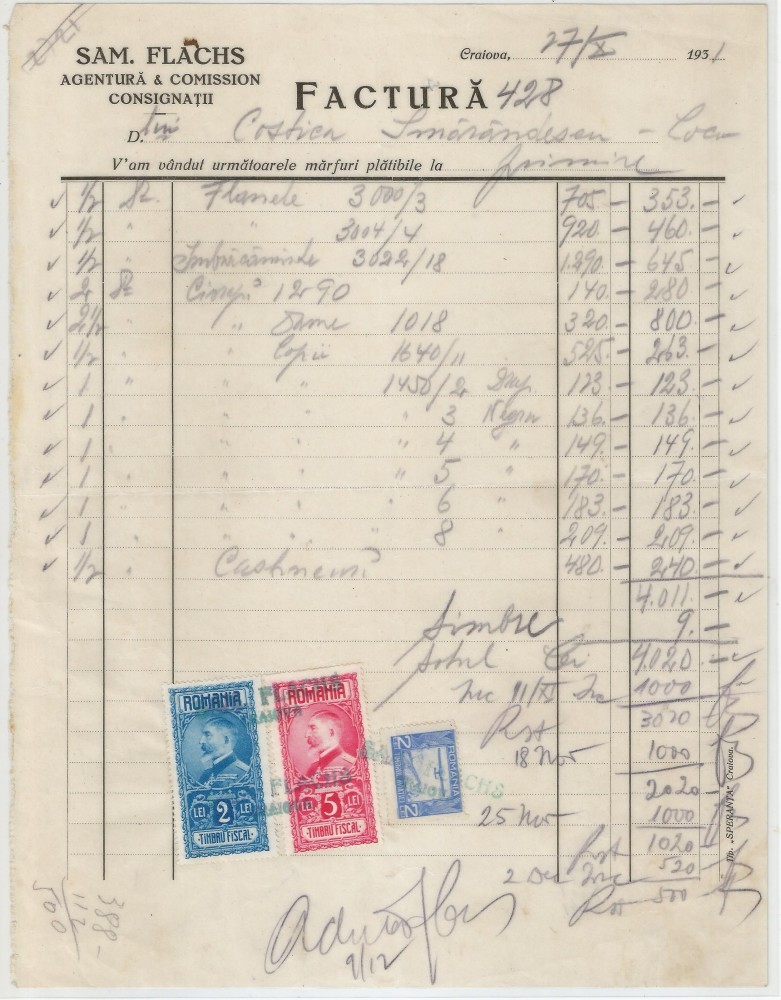 SAM. FLACHS
AGENTURĂ & COMISSION
CONSIGNAȚII
Craiova, 27/X 1931
FACTURĂ 428
D. Costica Smărăndescu - Loco
V'am vândut următoarele mărfuri plătibile la primire
1/2 Dz. Flanele 3000/3 705.- 353.-
1/2 " " 3004/4 920.- 460.-
1/2 " 3022/18 1.290.- 645.-
2 Dz 1290 140.- 280.-
2 1/2 " " Dame 1018 320.- 800.-
1/2 " " Copii 1640/11 525.- 263.-
1 " " " 1450/2 Drap 123.- 123.-
1 " " " " 3 Negru 136.- 136.-
1 " " " " 4 " 149.- 149.-
1 " " " " 5 " 170.- 170.-
1 " " " " 6 " 183.- 183.-
1 " " " " 8 " 209.- 209.-
1/2 " 480.- 240.-
4.011.-
Timbre 9.-
Totul Lei 4.020.-
Inc 11/XI 1000
Rest 3020
18 Nov 1000
2020
25 Nov 1000
Rest 1020
2 Dec Inc 520
Rest 500
ROMANIA
LEI 2 LEI
TIMBRU FISCAL
ROMANIA
LEI 5 LEI
TIMBRU FISCAL
ROMANIA
2 2
FLACHS
Tip. „SPERANȚA" Craiova.
9/12
388-
112
500